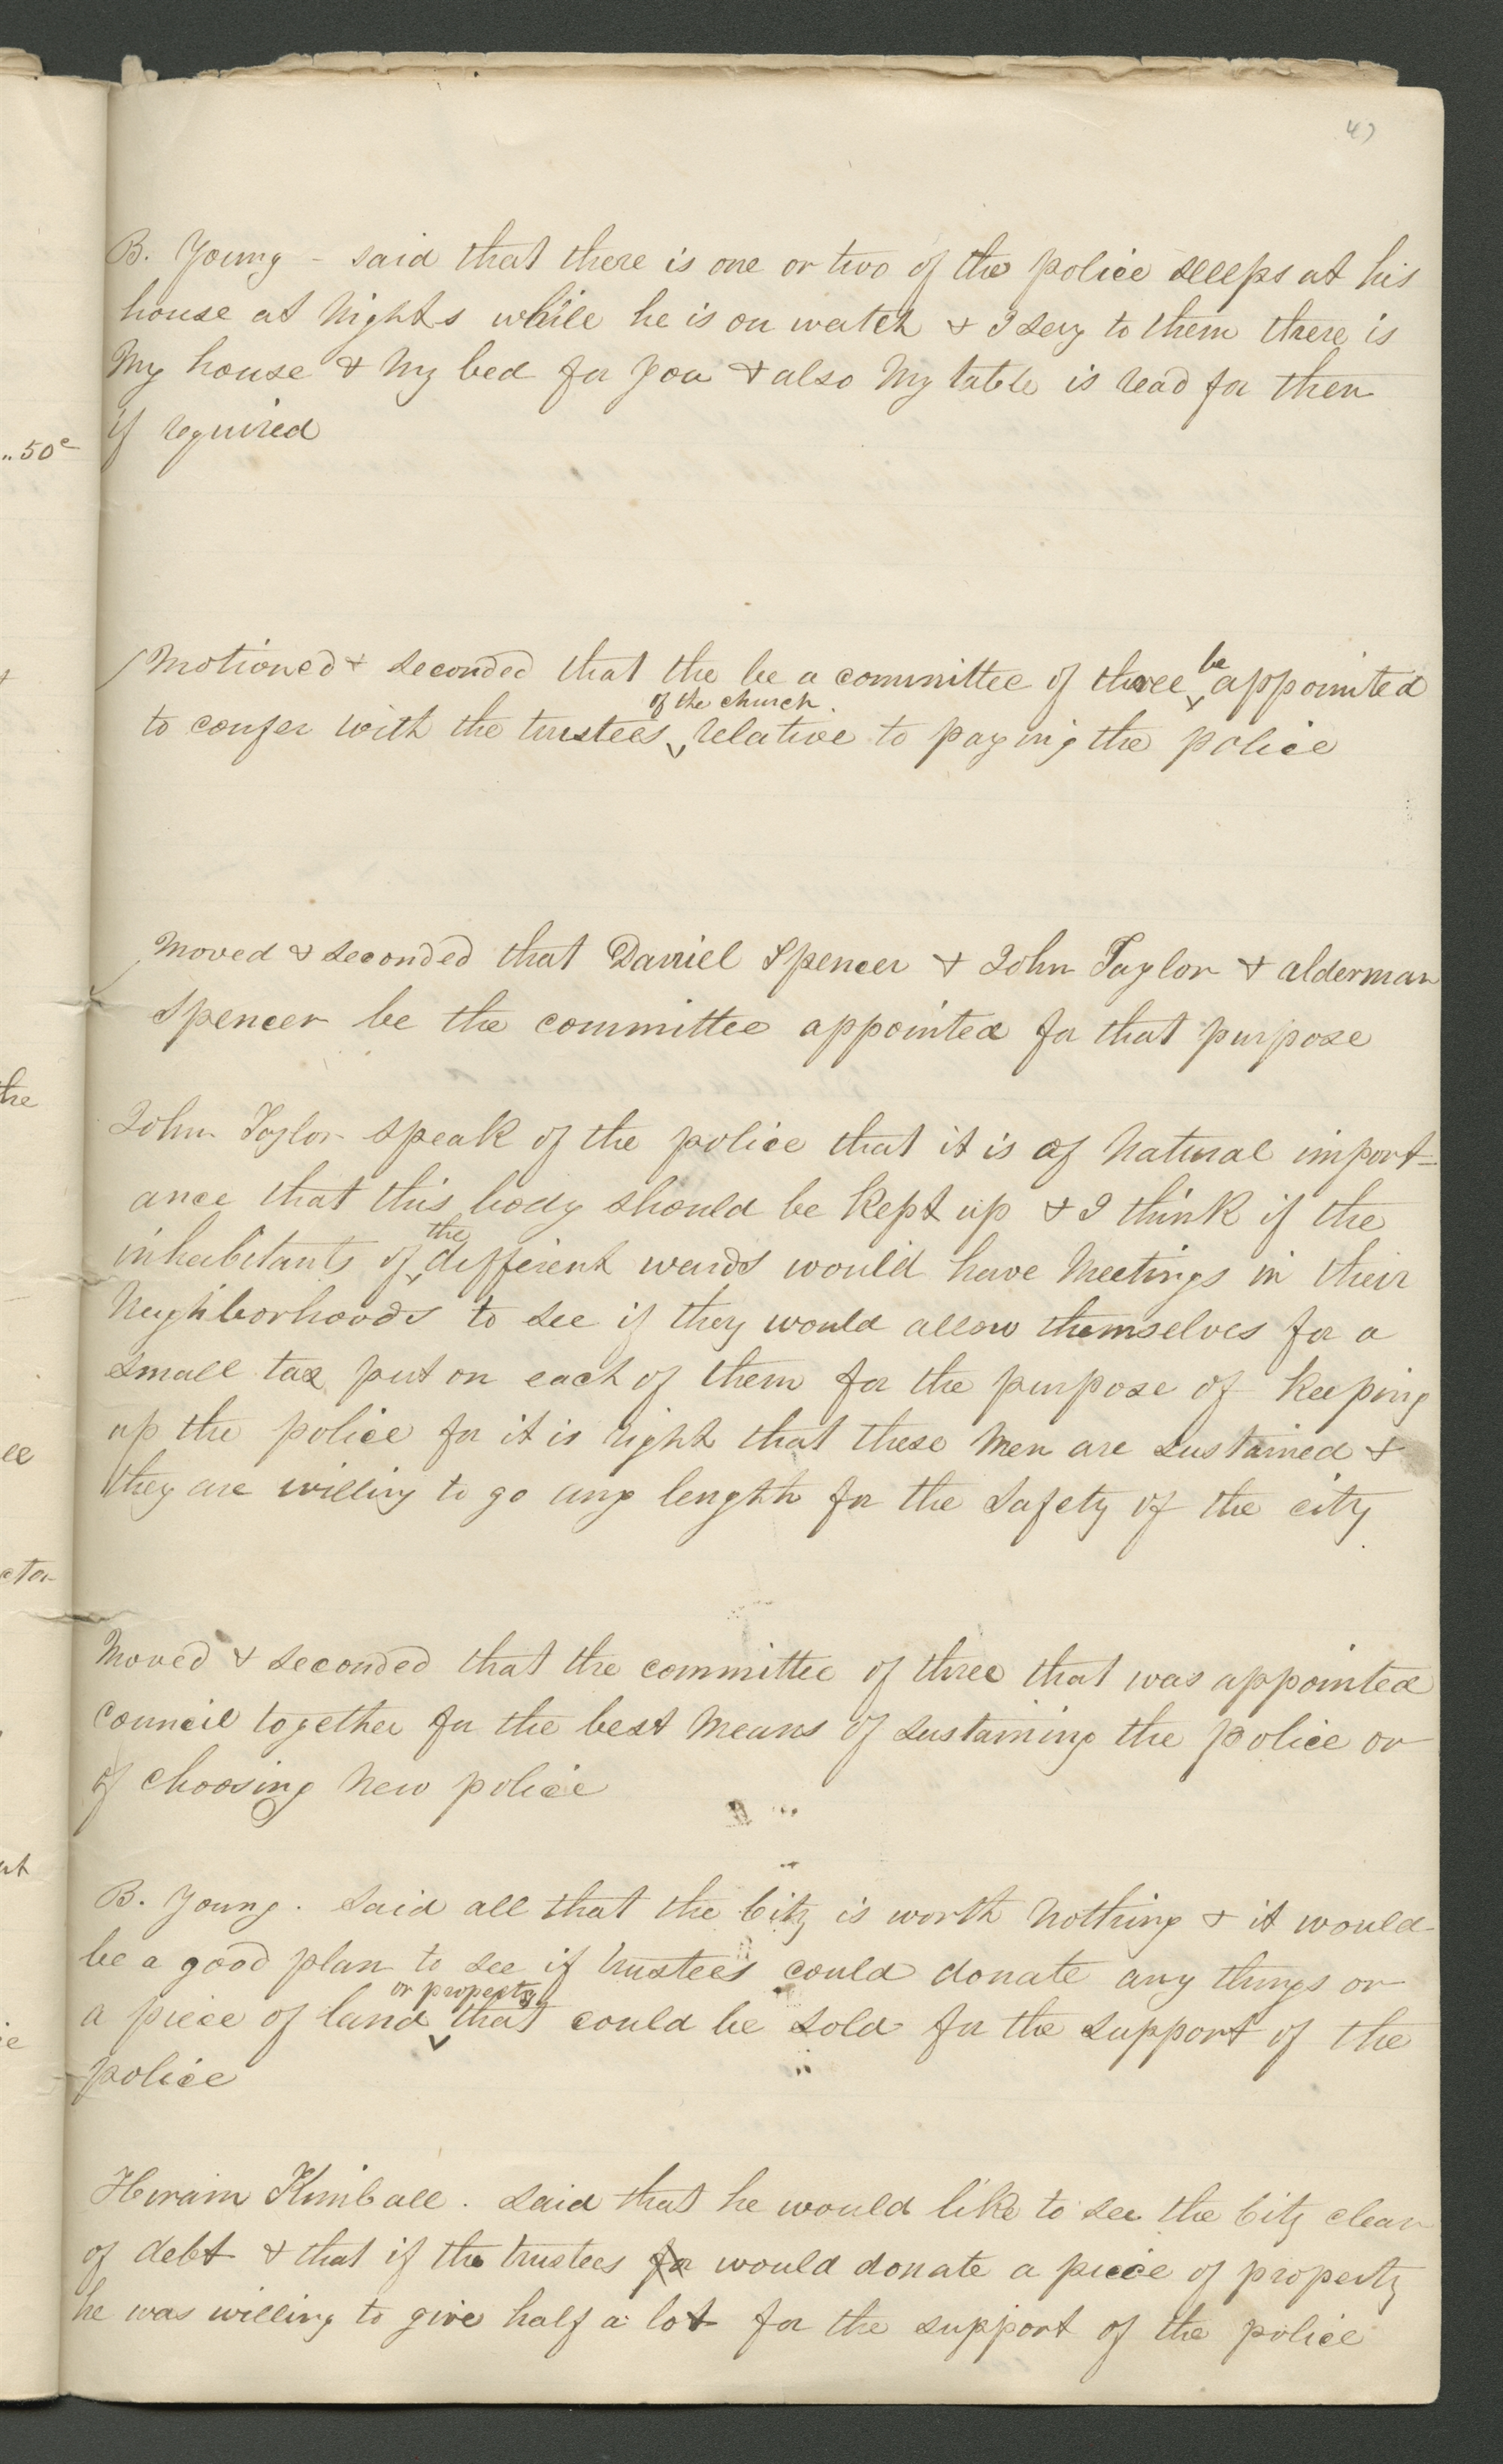 47
B. Young - said that there is one or two of the police sleeps at his
house at Nights while he is on watch & I say to them there is
My house & My bed for you & also My table is read for them
if required
Motioned & seconded that the be a committee of three be appointed
to confer with the trustees of the church. relative to paying the police
Moved & seconded that Daniel Spencer & John Taylor & alderman
Spencer be the committee appointed for that purpose
John Taylor speak of the police that it is of Natural import=
ance that this body should be kept up & I think if the
inhabitants of the different wards would have Meetings in their
Neighborhoods to see if they would allow themselves for a
small tax put on each of them for the purpose of keeping
up the police for it is right that these Men are sustained &
they are willing to go any length for the safety of the city
Moved & seconded that the committee of three that was appointed
council together for the best Means of sustaining the police or
of choosing New police
B. Young. said all that the City is worth Nothing & it would
be a good plan to see if trustees could donate any things or
a piece of land or property that could be sold for the support of the
police
Hiram Kimball. said that he would like to see the City clear
of debt & that if the trustees for would donate a piece of property
he was willing to give half a lot for the support of the police
50c
the